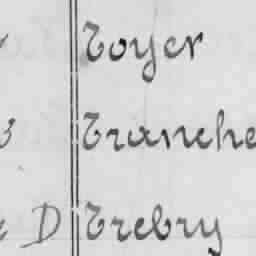 Toyer
Tranche
D Trebry